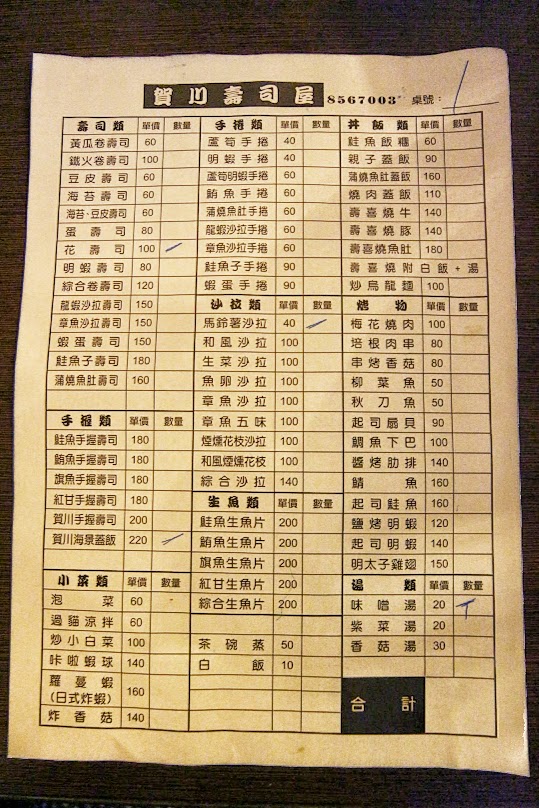 賀川壽司屋 8567003 桌號：
壽司類 單價 數量
黃瓜卷壽司 60
鐵火卷壽司 100
豆皮壽司 60
海苔壽司 60
海苔·豆皮壽司 60
蛋壽司 80
花壽司 100
明蝦壽司 80
綜合卷壽司 120
龍蝦沙拉壽司 150
章魚沙拉壽司 150
蝦蛋壽司 150
鮭魚子壽司 180
蒲燒魚肚壽司 160
手握類 單價 數量
鮭魚手握壽司 180
鮪魚手握壽司 180
旗魚手握壽司 180
紅甘手握壽司 180
賀川手握壽司 200
賀川海景蓋飯 220
小菜類 單價 數量
泡菜 60
過貓涼拌 60
炒小白菜 100
咔啦蝦球 140
羅蔓蝦
(日式炸蝦) 160
炸香菇 140
手捲類 單價 數量
蘆筍手捲 40
明蝦手捲 40
蘆筍明蝦手捲 60
鮪魚手捲 60
蒲燒魚肚手捲 60
龍蝦沙拉手捲 60
章魚沙拉手捲 60
鮭魚子手捲 90
蝦蛋手捲 90
沙拉類 單價 數量
馬鈴薯沙拉 40
和風沙拉 100
生菜沙拉 100
魚卵沙拉 100
章魚沙拉 100
章魚五味 100
煙燻花枝沙拉 100
和風煙燻花枝 100
綜合沙拉 140
生魚類 單價 數量
鮭魚生魚片 200
鮪魚生魚片 200
旗魚生魚片 200
紅甘生魚片 200
綜合生魚片 200
茶碗蒸 50
白飯 10
丼飯類 單價 數量
鮭魚飯糰 60
親子蓋飯 90
蒲燒魚肚蓋飯 160
燒肉蓋飯 110
壽喜燒牛 140
壽喜燒豚 140
壽喜燒魚肚 180
壽喜燒附白飯+湯
炒烏龍麵 100
烤物 單價 數量
梅花燒肉 100
培根肉串 80
串烤香菇 80
柳葉魚 50
秋刀魚 50
起司扇貝 90
鯛魚下巴 100
醬烤肋排 140
鯖魚 160
起司鮭魚 160
鹽烤明蝦 120
起司明蝦 140
明太子雞翅 150
湯類 單價 數量
味噌湯 20
紫菜湯 20
香菇湯 30
合計